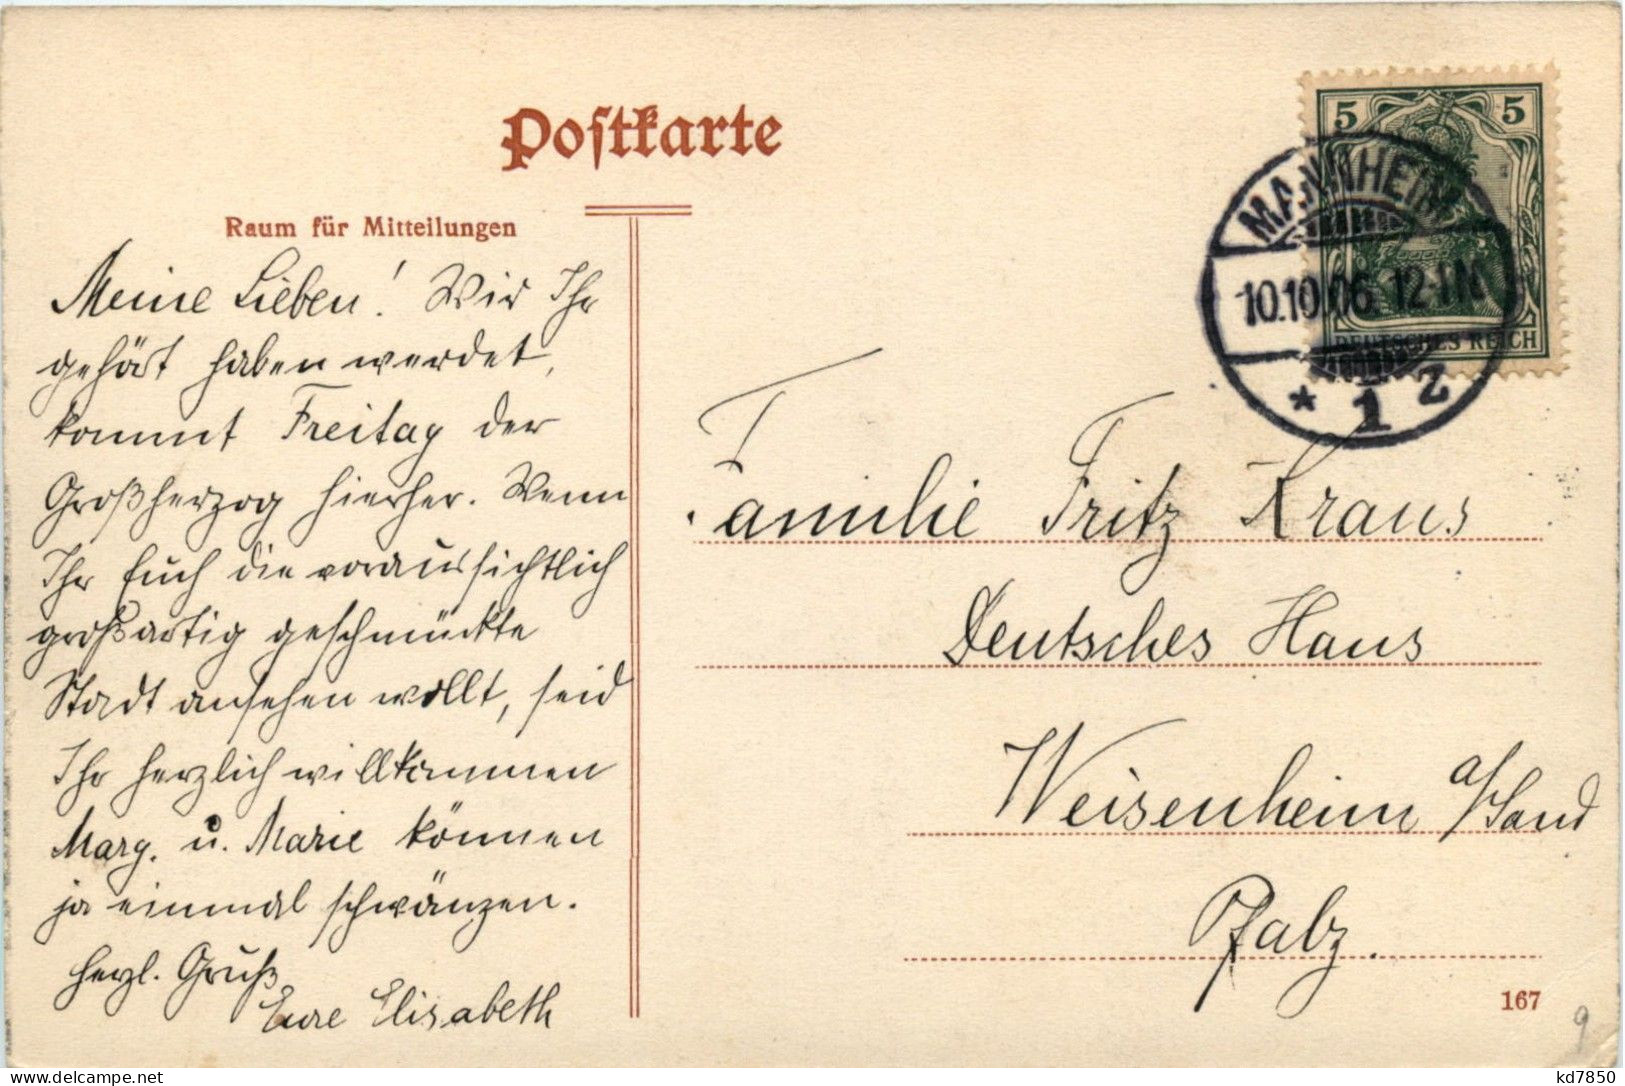 Postkarte
Raum für Mitteilungen
Meine Lieben! Wir Ihr
gehört haben werdet,
kommt Freitag der
Großherzog hierher. Wenn
Ihr Euch die voraussichtlich
großartig geschmückte
Stadt ansehen wollt, seid
Ihr herzlich willkommen
Marg. u. Marie können
ja einmal schwänzen.
Herzl. Gruß
Eure Elisabeth
5 5
DEUTSCHES REICH
MANNHEIM
10.10.06. 12-1N
* 1 z
Familie Fritz Kraus
Deutsches Haus
Weisenheim a/Sand
Pfalz.
167
9
kd7850